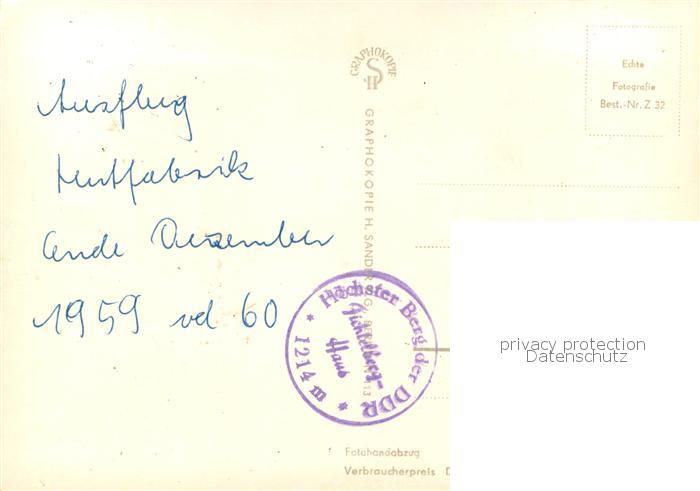 Ausflug
Hutfabrik
Ende Dezember
1959 od 60
GRAPHOKOPIE
SH
GRAPHOKOPIE H. SANDER
Höchster Berg der DDR
* 1214 m *
Fichtelberg-
Haus
Echte
Fotografie
Best.-Nr. Z 32
Fotohandabzug
Verbraucherpreis D
privacy protection
Datenschutz